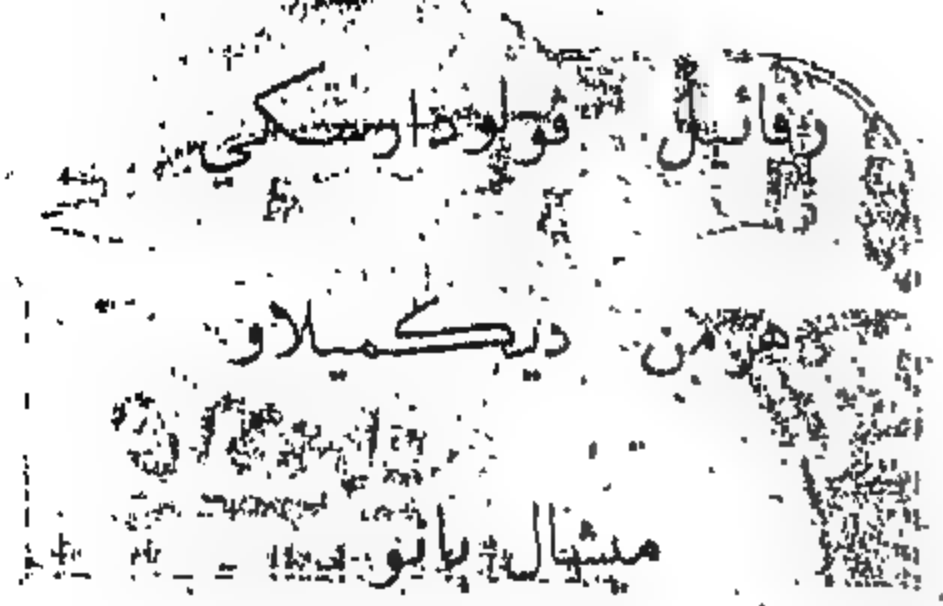 رفائيل فولودارسكي
هرمن ديكميلاو
ميشال